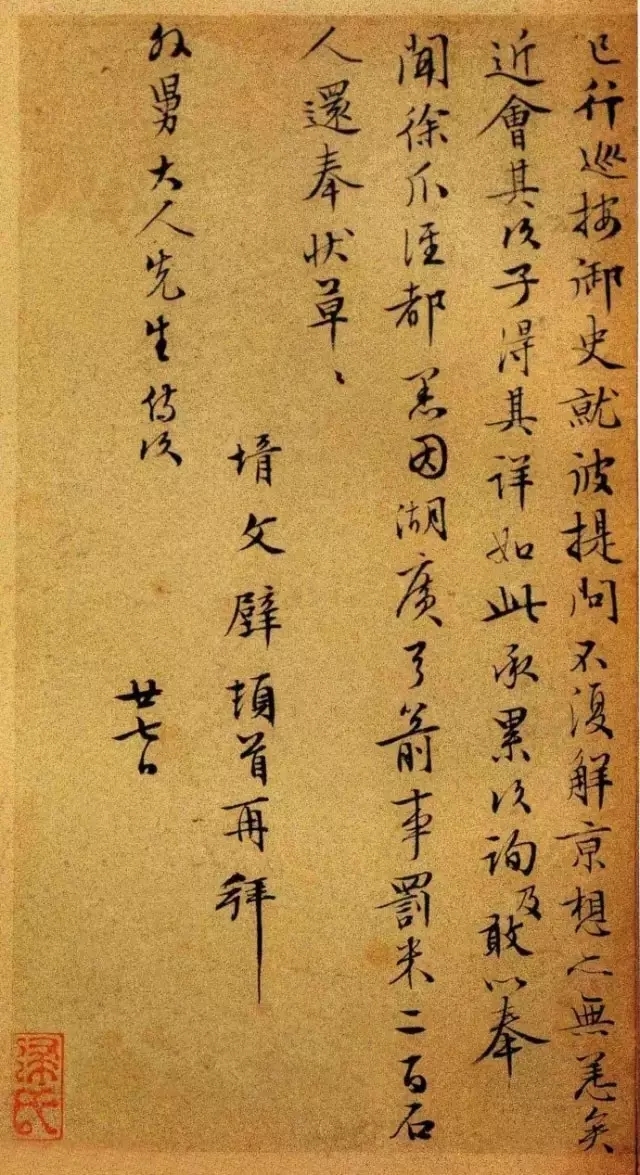 已行巡按御史就彼提问不復解京想亦無恙矣
近會其次子得其详如此承累次詢及敢以奉
聞徐
都
因湖廣弓箭事罰米二百石
人還奉狀草〻
壻文壁頓首再拜
外舅大人先生侍次
廿七日
梁氏